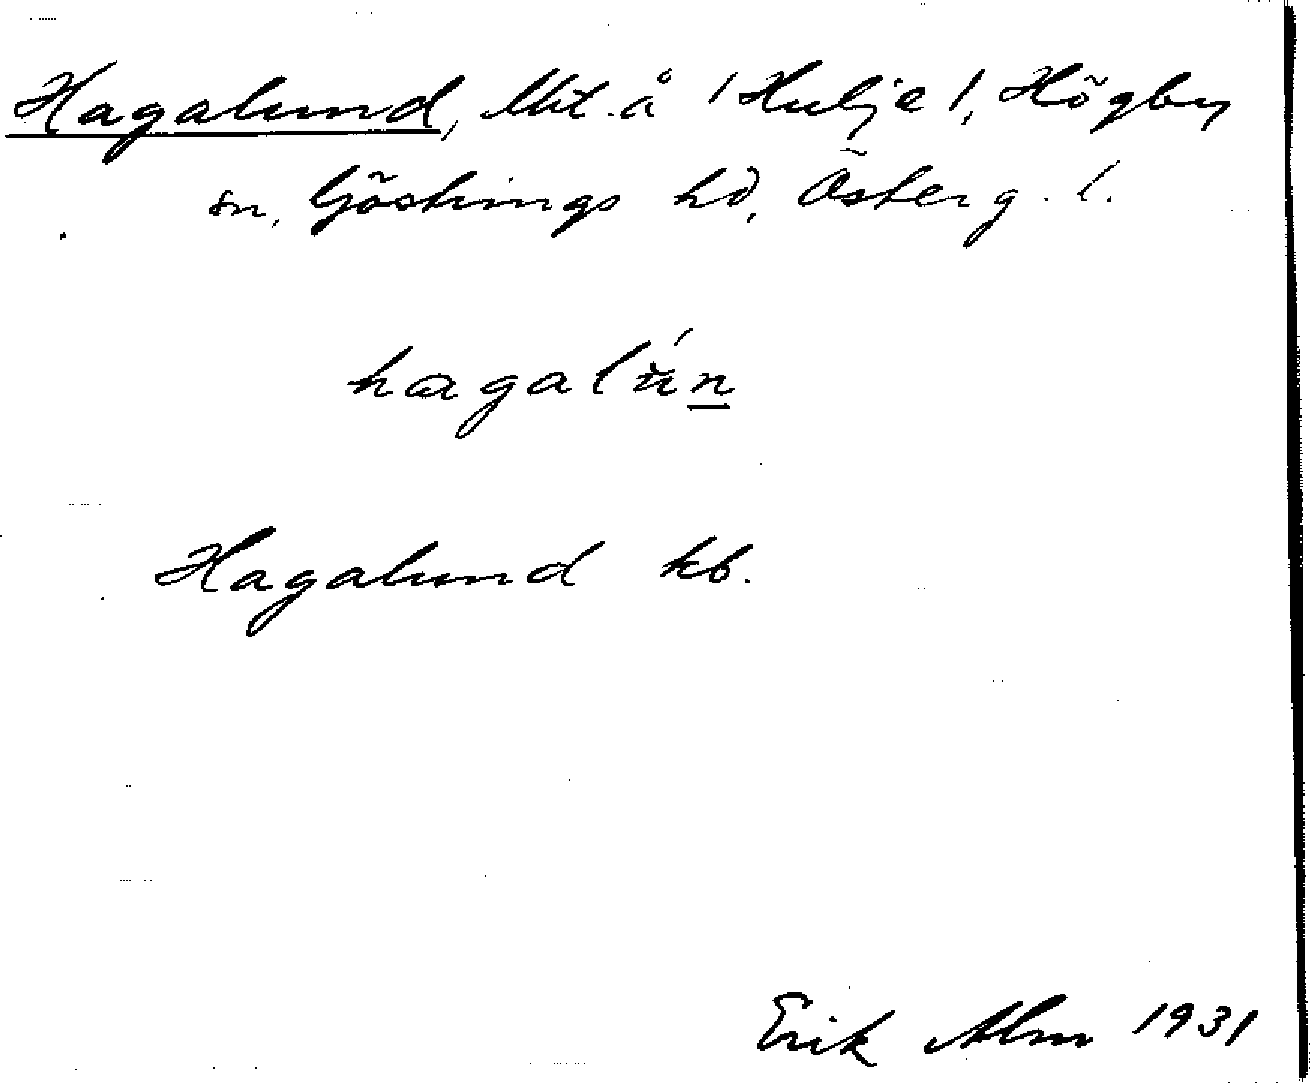 Hagalund, lht. å /Hulje/, Högby
sn, Göstrings hd, Österg. l.
hagalún
Hagalund kb.
Erik Alm 1931